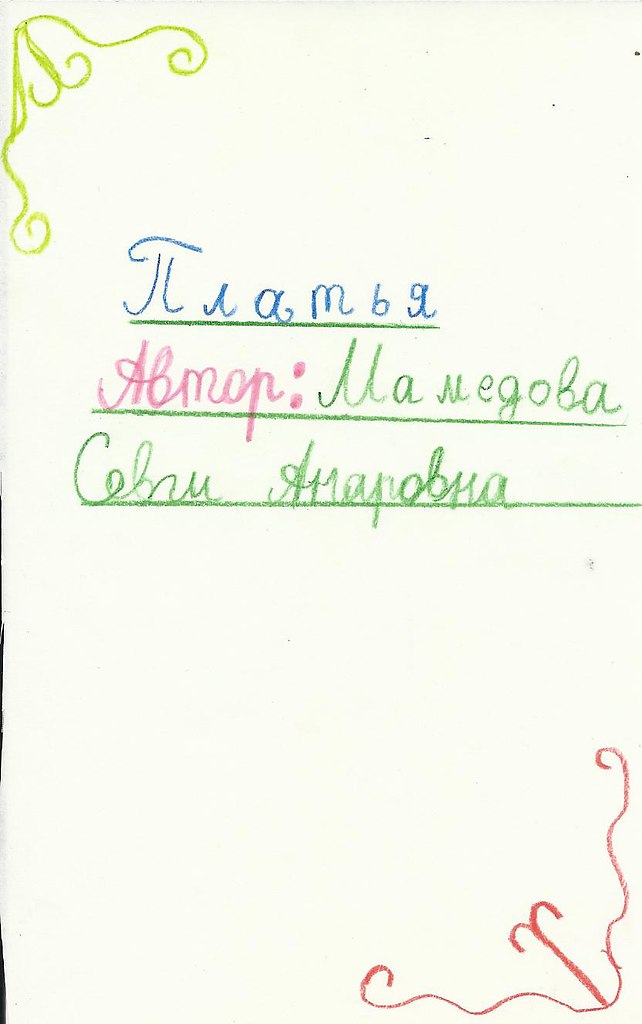 Платья
Автор: Мамедова
Севги Анаровна